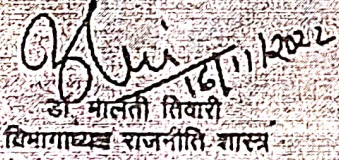 16/11/2022
डॉ. मालती तिवारी
विभागाध्यक्ष राजनीति शास्त्र